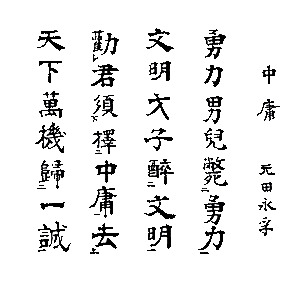 中庸 元田永孚
勇力男兒斃勇力
文明才子醉文明
勸君須擇中庸去
天下萬機歸一誠